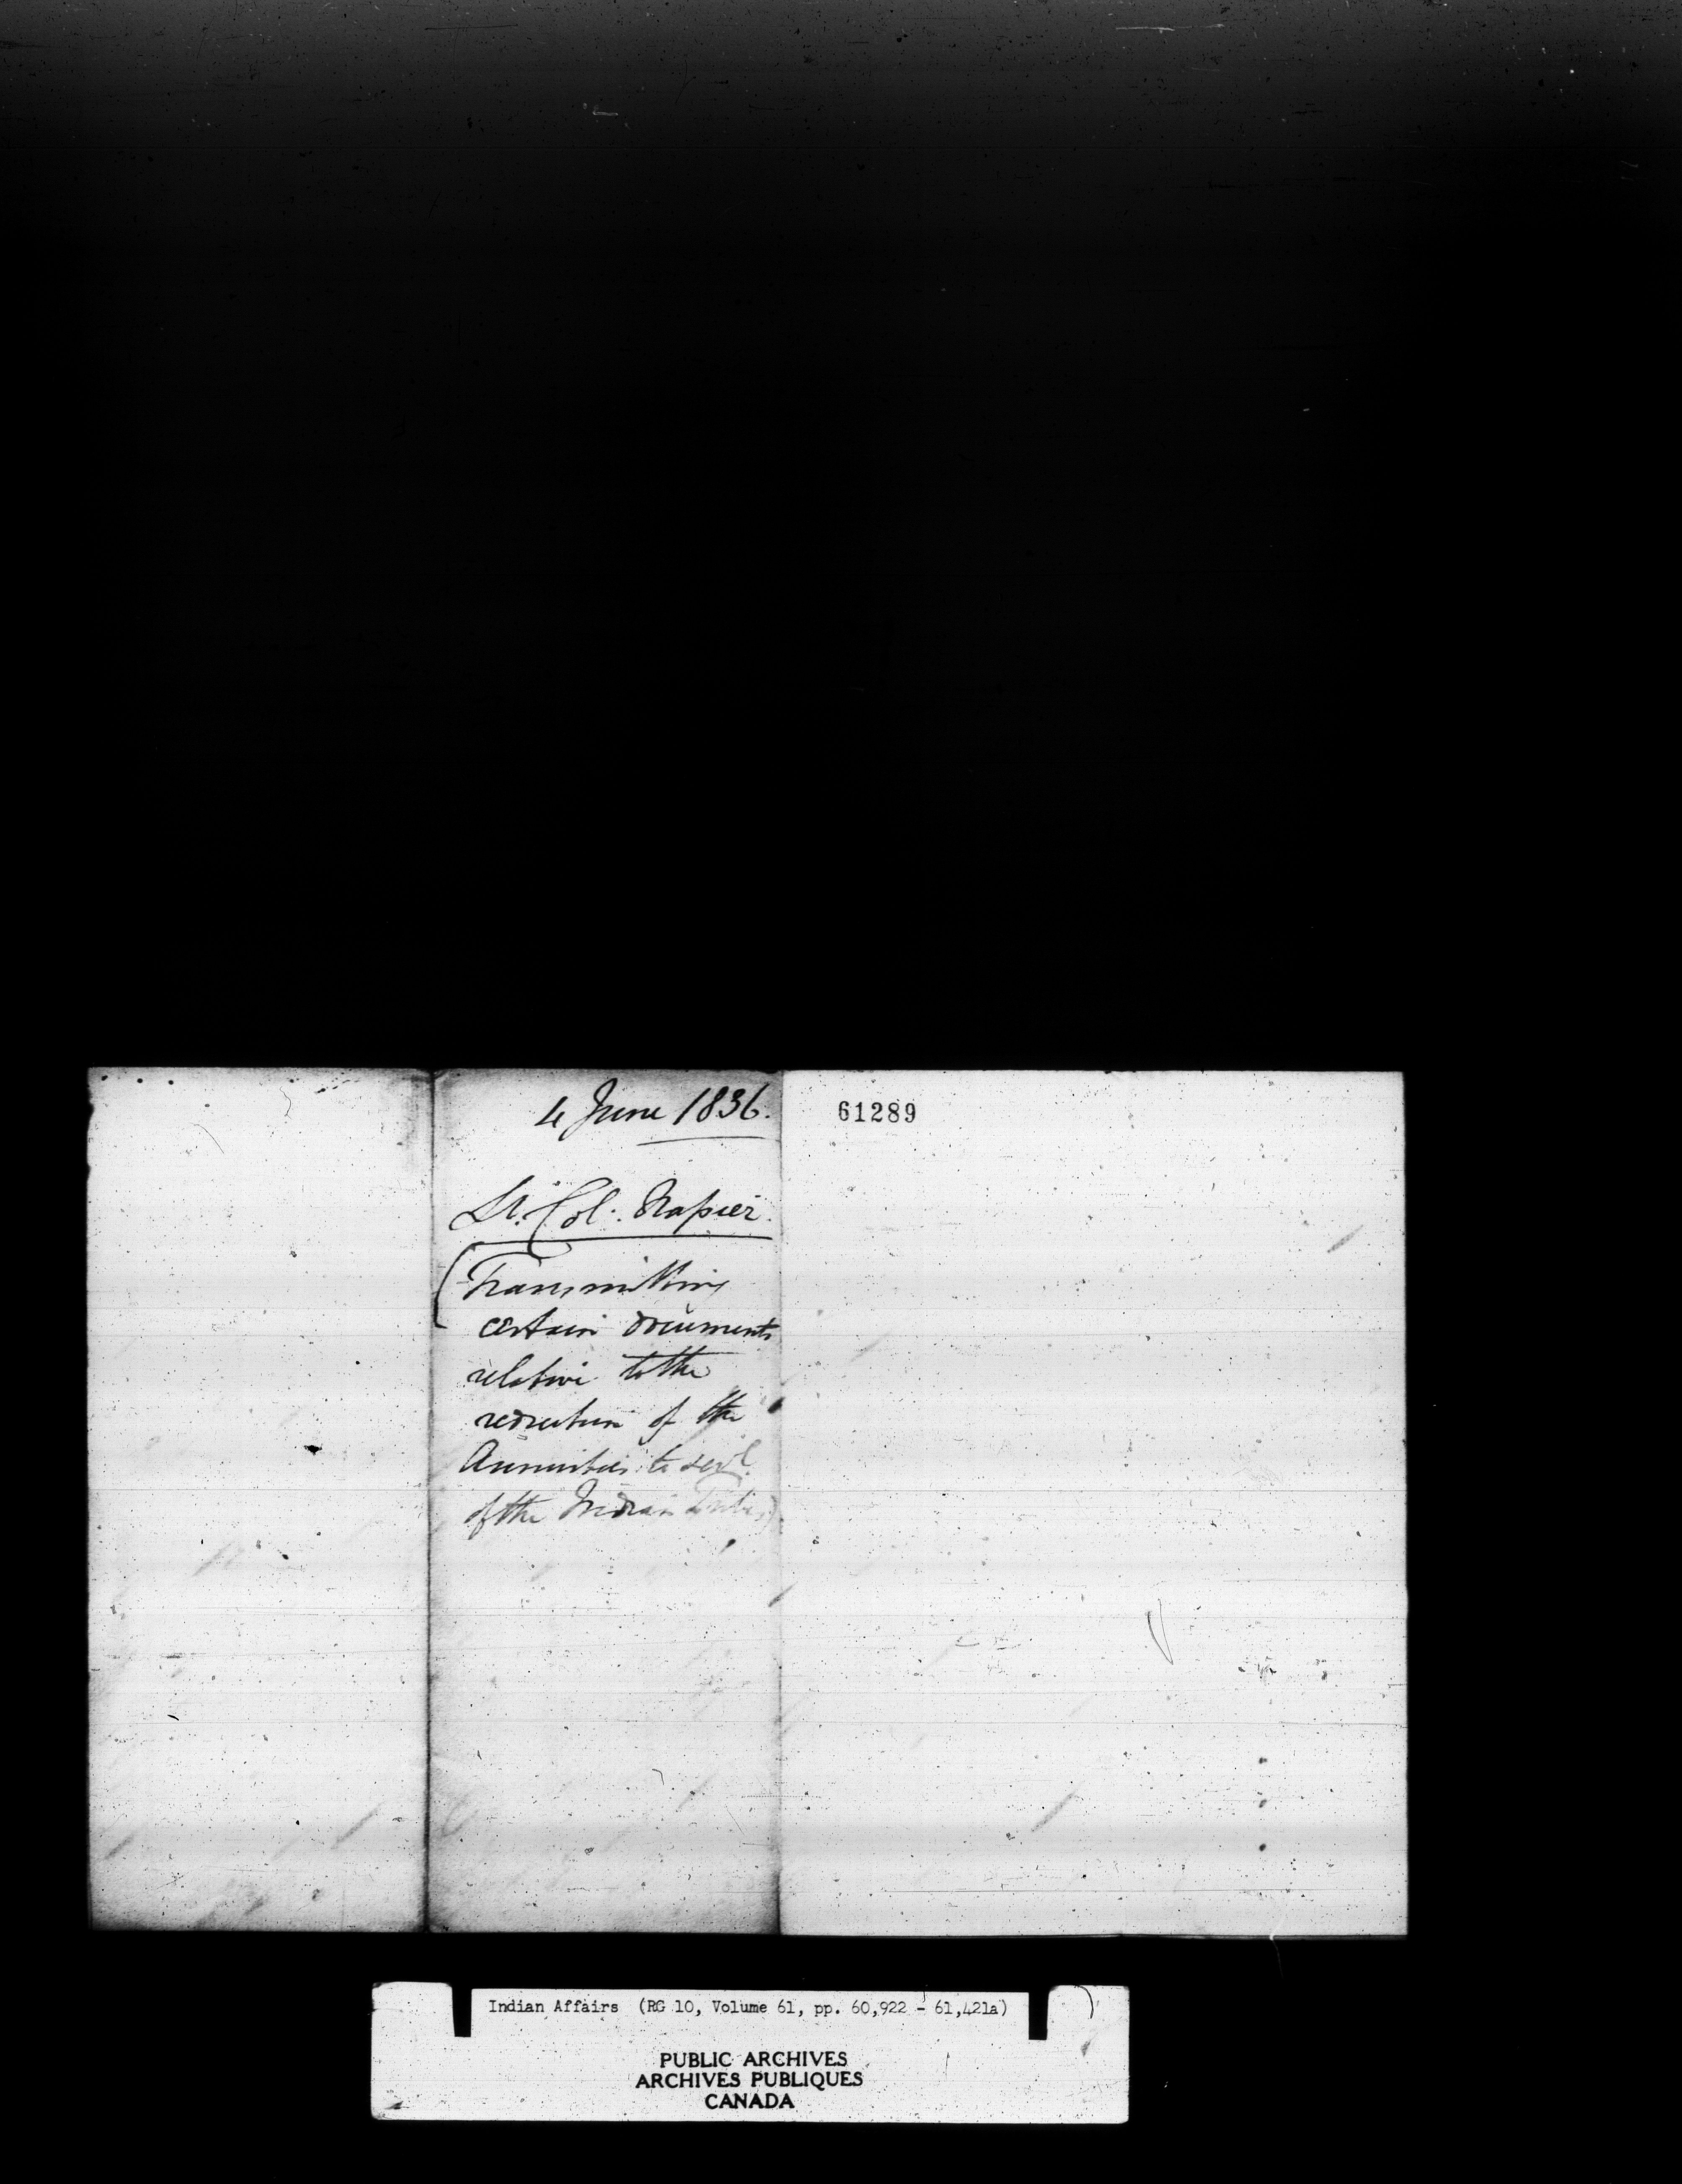 4 June 1836.
Lt. Col. Napier.
(Transmitting
certain documents
relative to the
reduction of the
Annuities to sevl.
of the Indian Tribes)
61289
Indian Affairs (RG 10, Volume 61, pp. 60,922 - 61,421a)
PUBLIC ARCHIVES
ARCHIVES PUBLIQUES
CANADA